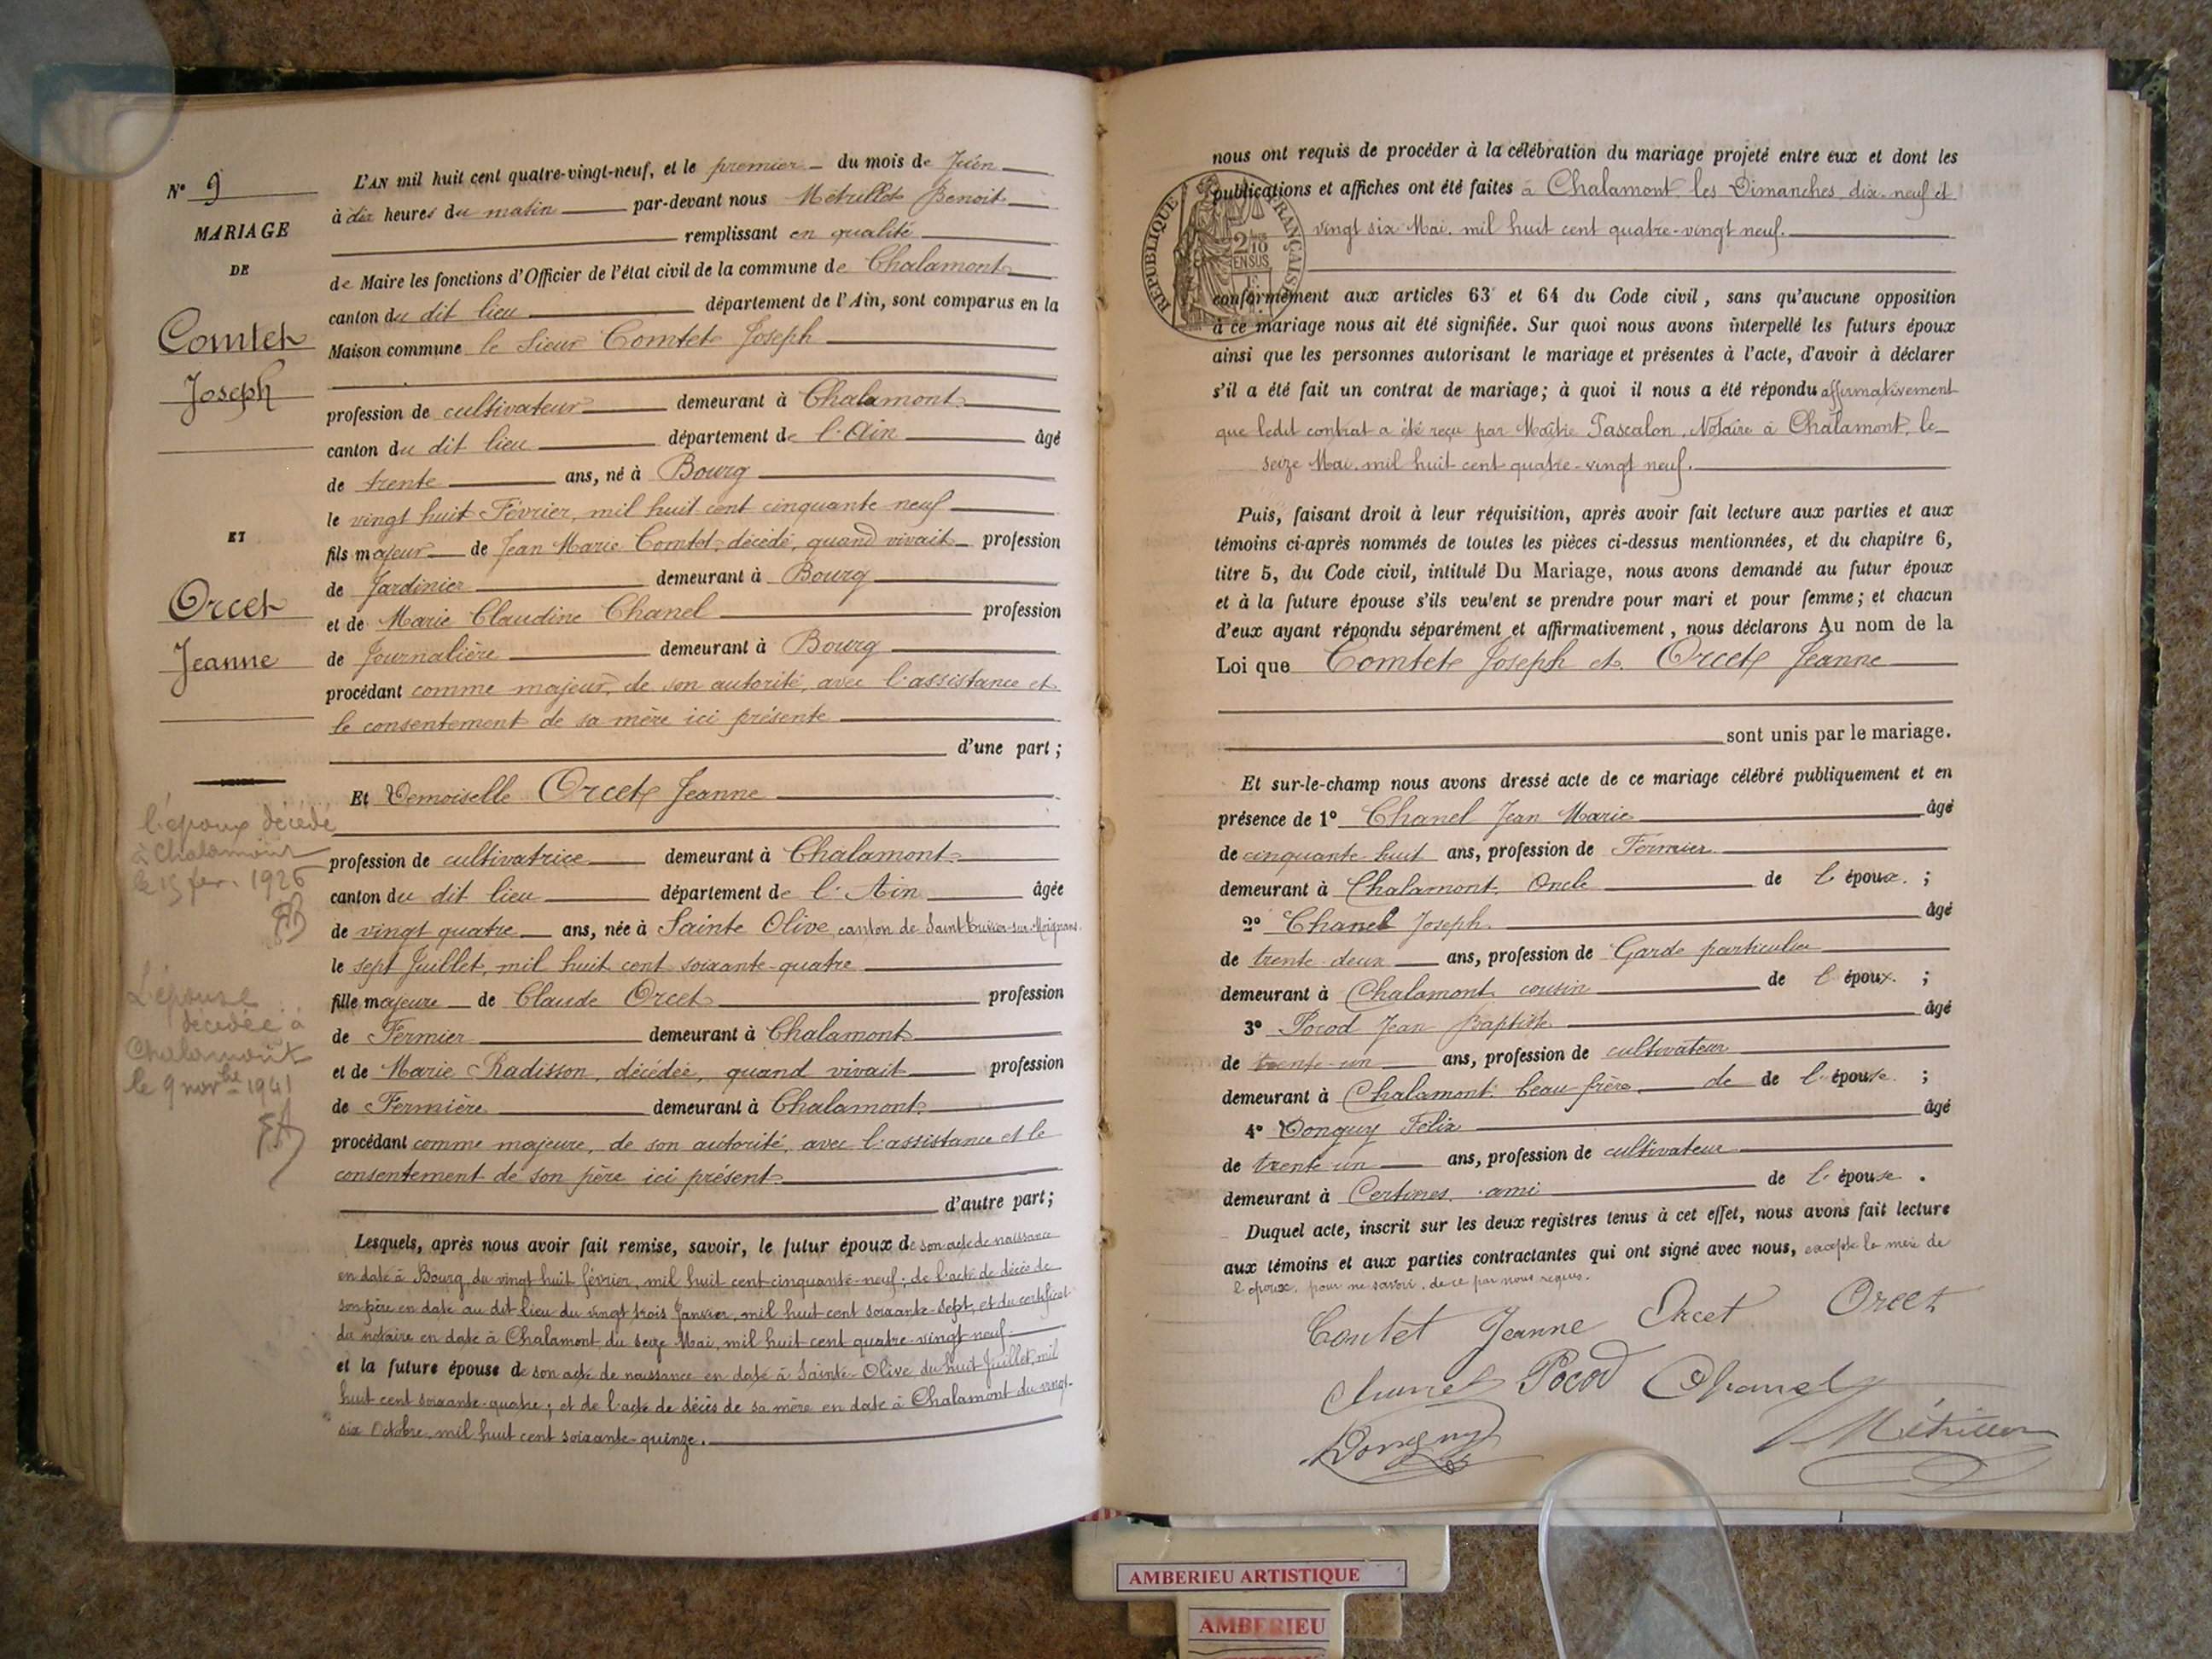 N° 9
MARIAGE
DE
Comtet
Joseph
ET
Orcet
Jeanne
l'époux décédé
à Chalamont
le 15 fev. 1926
L'épouse
décédée à
Chalamont
le 9 novbre 1941
L'AN mil huit cent quatre-vingt-neuf, et le premier du mois de Juin
à dix heures du matin par-devant nous Métrillot Benoit
remplissant en qualité
de Maire les fonctions d'Officier de l'état civil de la commune de Chalamont
canton du dit lieu département de l'Ain, sont comparus en la
Maison commune le Sieur Comtet Joseph
profession de cultivateur demeurant à Chalamont
canton du dit lieu département de l'Ain âgé
de trente ans, né à Bourg
le vingt huit Février, mil huit cent cinquante neuf
fils majeur de Jean Marie Comtet, décédé, quand vivait profession
de Jardinier demeurant à Bourg
et de Marie Claudine Chanel profession
de Journalière demeurant à Bourg
procédant comme majeur, de son autorité, avec l'assistance et
le consentement de sa mère ici présente
d'une part ;
Et Demoiselle Orcet Jeanne
profession de cultivatrice demeurant à Chalamont
canton du dit lieu département de l'Ain âgée
de vingt quatre ans, née à Sainte Olive, canton de Saint Trivier-sur-Moignans
le sept Juillet, mil huit cent soixante-quatre
fille majeure de Claude Orcet profession
de Fermier demeurant à Chalamont
et de Marie Radisson, décédée, quand vivait profession
de Fermière demeurant à Chalamont
procédant comme majeure, de son autorité, avec l'assistance et le
consentement de son père ici présent
d'autre part ;
Lesquels, après nous avoir fait remise, savoir, le futur époux de son acte de naissance
en date à Bourg du vingt huit février, mil huit cent cinquante-neuf ; de l'acte de décès de
son père en date au dit lieu du vingt trois Janvier, mil huit cent soixante-sept, et du certificat
du notaire en date à Chalamont du seize Mai, mil huit cent quatre-vingt neuf
et la future épouse de son acte de naissance en date à Sainte-Olive du huit Juillet, mil
huit cent soixante-quatre ; et de l'acte de décès de sa mère en date à Chalamont du vingt-
six Octobre, mil huit cent soixante-quinze.
nous ont requis de procéder à la célébration du mariage projeté entre eux et dont les
publications et affiches ont été faites à Chalamont les Dimanches dix-neuf et
vingt six Mai. mil huit cent quatre-vingt neuf.
REPUBLIQUE FRANÇAISE
2/10 EN SUS
conformément aux articles 63 et 64 du Code civil, sans qu'aucune opposition
à ce mariage nous ait été signifiée. Sur quoi nous avons interpellé les futurs époux
ainsi que les personnes autorisant le mariage et présentes à l'acte, d'avoir à déclarer
s'il a été fait un contrat de mariage ; à quoi il nous a été répondu affirmativement
que ledit contrat a été reçu par Maître Pascalon, Notaire à Chalamont, le
seize Mai. mil huit cent quatre-vingt neuf.
Puis, faisant droit à leur réquisition, après avoir fait lecture aux parties et aux
témoins ci-après nommés de toutes les pièces ci-dessus mentionnées, et du chapitre 6,
titre 5, du Code civil, intitulé Du Mariage, nous avons demandé au futur époux
et à la future épouse s'ils veulent se prendre pour mari et pour femme ; et chacun
d'eux ayant répondu séparément et affirmativement, nous déclarons Au nom de la
Loi que Comtet Joseph et Orcet Jeanne
sont unis par le mariage.
Et sur-le-champ nous avons dressé acte de ce mariage célébré publiquement et en
présence de 1° Chanel Jean Marie âgé
de cinquante-huit ans, profession de Fermier
demeurant à Chalamont, Oncle de l'époux ;
2° Chanel Joseph âgé
de trente-deux ans, profession de Garde particulier
demeurant à Chalamont cousin de l'époux ;
3° Pocod Jean Baptiste âgé
de trente-un ans, profession de cultivateur
demeurant à Chalamont, beau frère de de l'épouse ;
4° Donguy Félix âgé
de trente-un ans, profession de cultivateur
demeurant à Certines, ami de l'épouse.
Duquel acte, inscrit sur les deux registres tenus à cet effet, nous avons fait lecture
aux témoins et aux parties contractantes qui ont signé avec nous, excepté la mère de
l'époux, pour ne savoir, de ce par nous requis.
Contet Jeanne Orcet Orcet
Chanel Pocod Chanel
Donguy Métrillot
AMBERIEU ARTISTIQUE
AMBERIEU